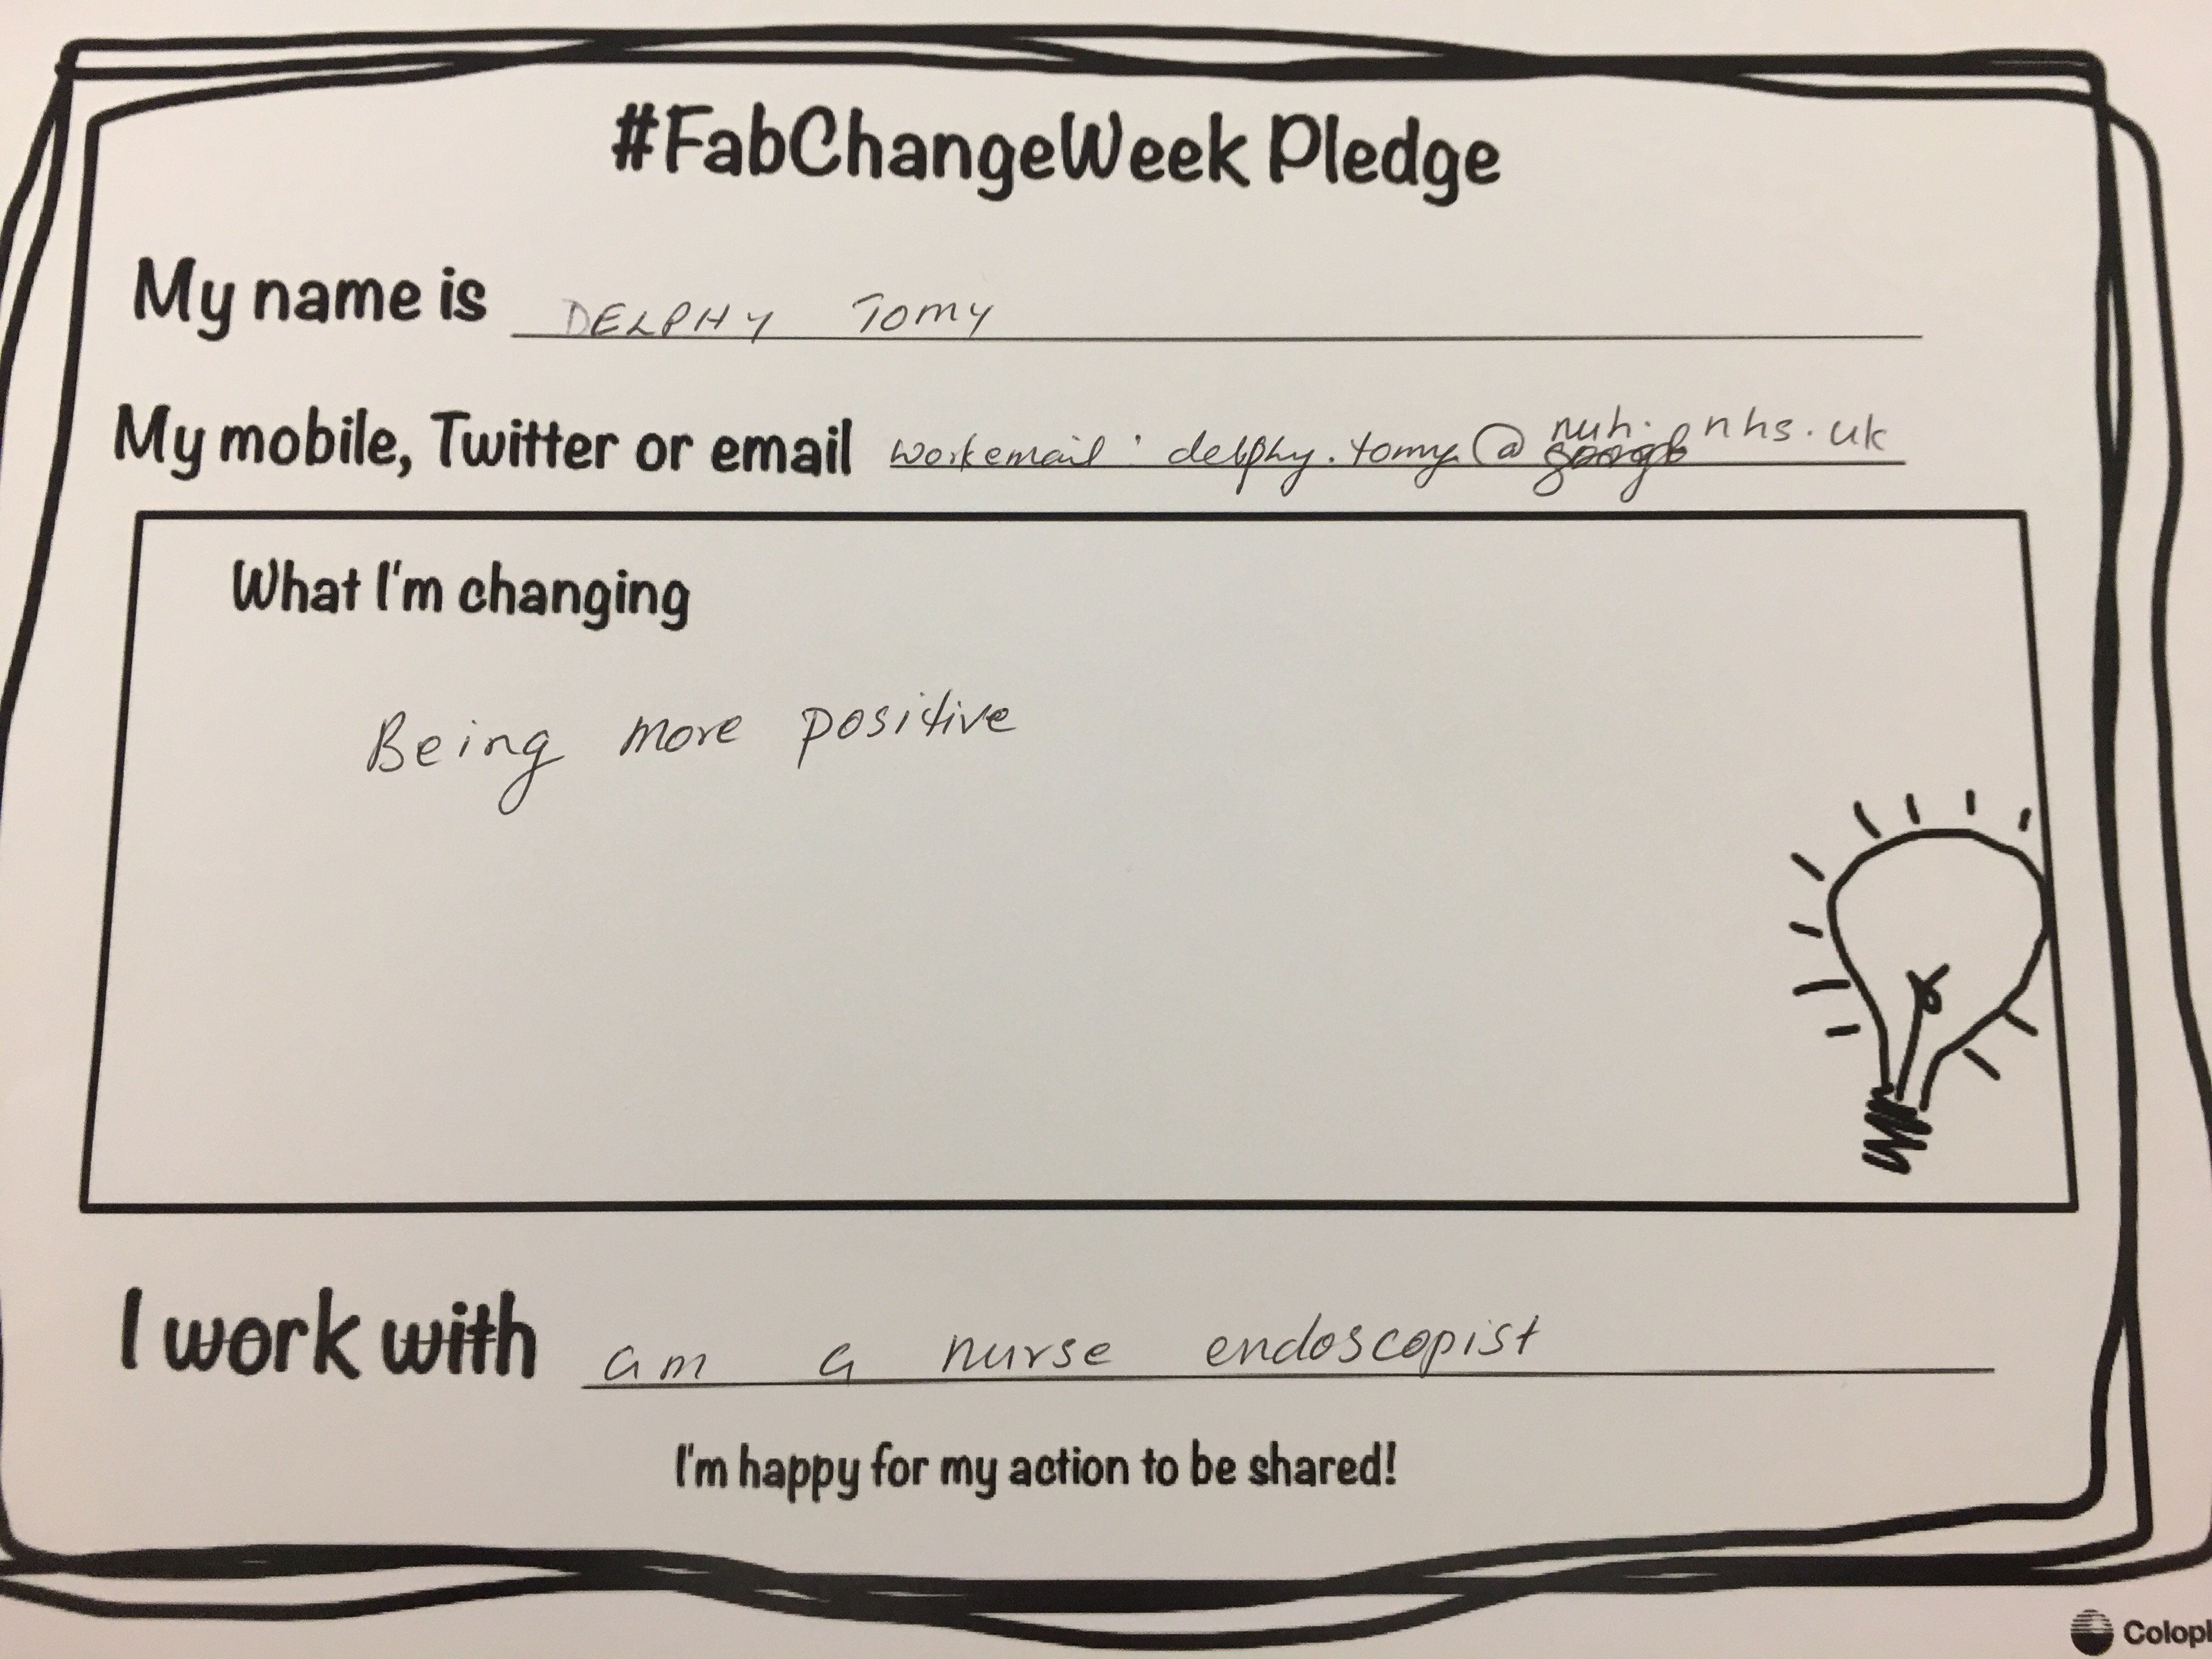 #FabChangeWeek Pledge
My name is DELPHY TOMY
My mobile, Twitter or email workemail : delphy.tomy@nuh.nhs.uk
What I'm changing
Being more positive
I work with am a nurse endoscopist
I'm happy for my action to be shared!
Colopl